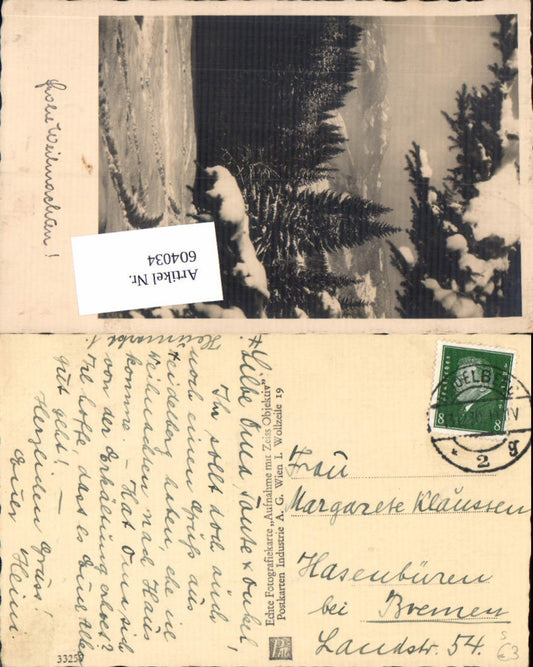 Frohe Weihnachten!
Artikel Nr.
604034
Heumarkt 1.
Liebe Oma, Tante & Onkel!
Ihr sollt doch auch
noch einen Gruß aus
Heidelberg haben, ehe ich
Weihnachten nach Haus
komme. – Hat Oma sich
von der Erkältung erholt?
Ich hoffe, dass es Euch allen
gut geht! –
Herzlichen Gruss!
Euer Hein.
Echte Fotografiekarte „Aufnahme mit Zeiss Objektiv"
Postkarten Industrie A. G. Wien I. Wollzeile 19
33259
DELBE
8 8
2 g
Frau
Margarete Klaussen
Hasenbüren
bei Bremen
Landstr. 54.
63